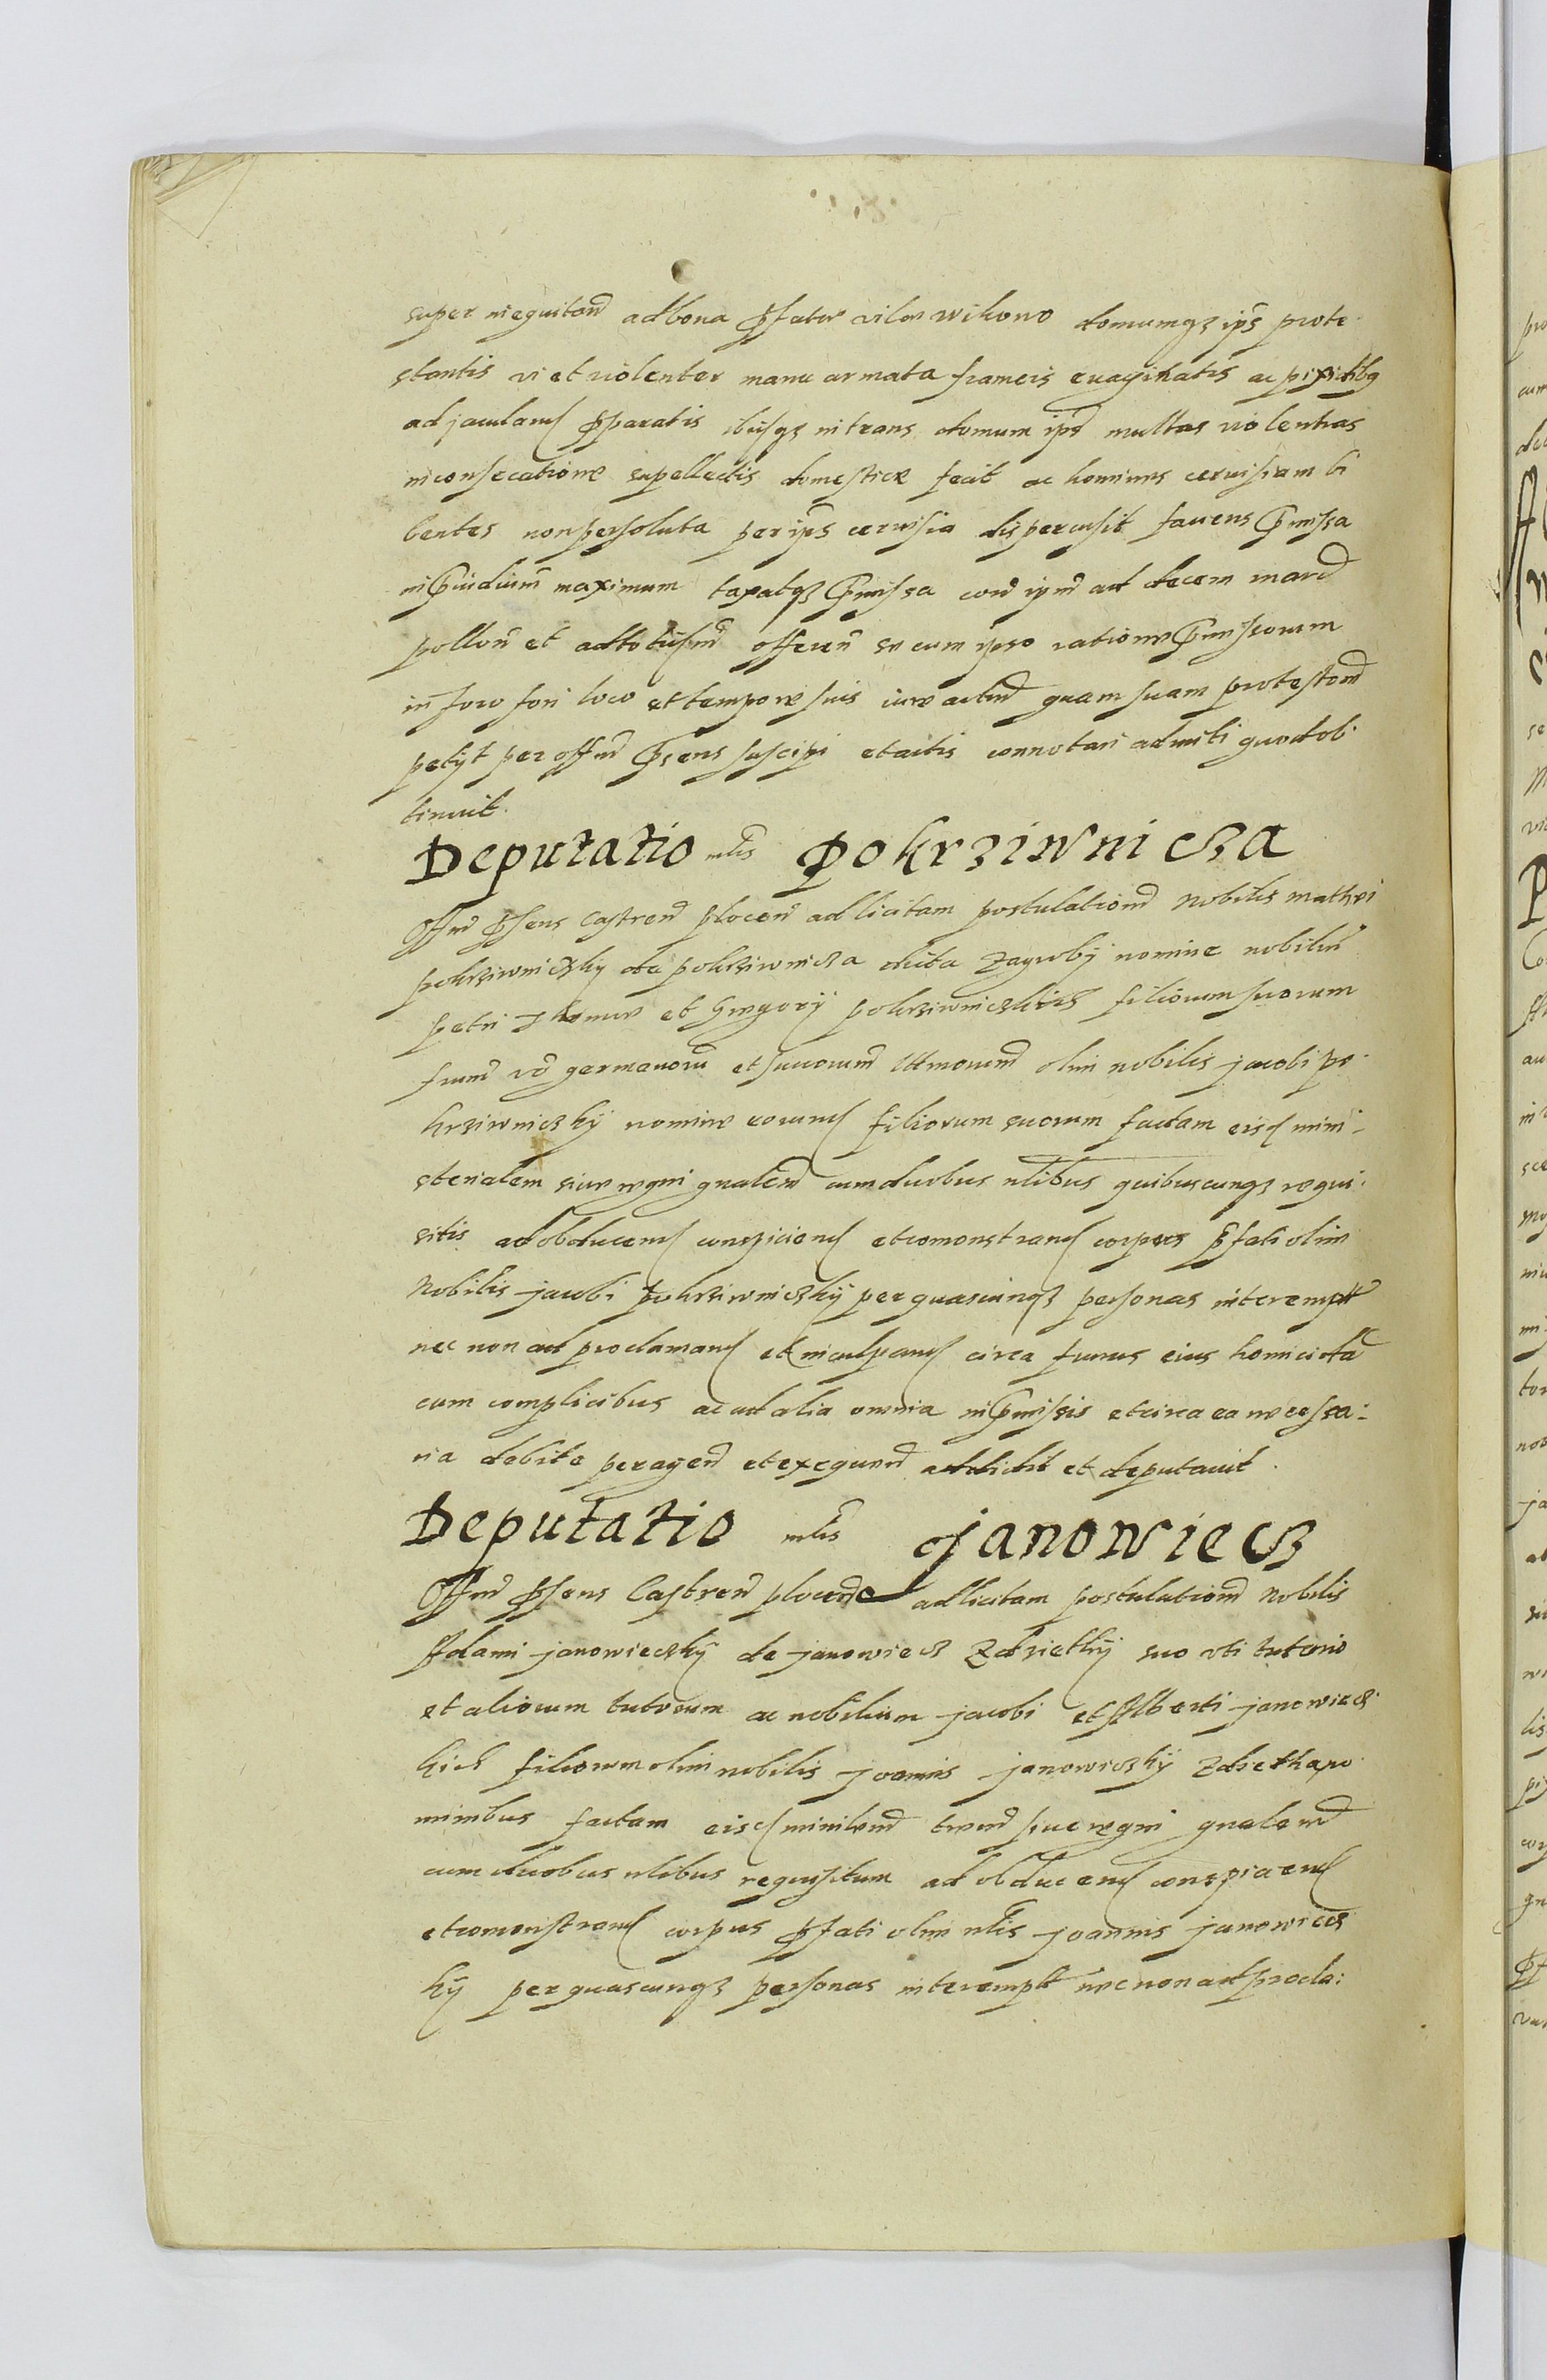 super inequitan̄ ad bona p̄fate ville wikowo domumq3 ips̄ prote
stantis vi et violenter manu armata frameis evaginatis ac pixidibq
ad jaculand p̄paratis ibiq3 intrans domum ips̄ multas violentias
in consecatione supellectis domesticæ fecit ac homines cervisiam bi
bentes non persoluta per ips̄ cervisia dispercusit faciens p̄missa
in p̄iudicium̄ maximum taxatq3 p̄missa coram ipm̄ ad decem marc̄
pollon̄ et ad totidem̄ offeren̄ se cum ipso ratione p̄missorum
in foro fori loco et tempore suis iure acturū quam suam protestionē
petijt per offm̄ p̄sens suscipi et actis connotari admitti quod ob
tinuit.
Deputatio mlis Pokrziwnicza
Offm̄ p̄sens Castren̄ plocen̄ ad licitam postulationē Nobilis mathei
pokrziwniczky de pokrziwnicza dicta Zagroby nomine nobiliū
petri Thomæ et Gregorij pokrziwniczkich filiorum suorum
frum̄ vō germanorū et succorum̄ lttmorum̄ olim nobilis jacobi po
krziwniczky nomine eorund filiorum suorum factam eisd mini
sterialem siue regni gnalem̄ cum duobus nlibus quibuscunq3 requi
sitis ad obducend conspiciend et comonstrand corpus p̄fati olim
Nobilis jacobi pokrziwniczkij per quascunq3 personas interempt̄
nec non ad proclamand et inculpand circa funus eius homicidā
cum complicibus ac ad alia omnia in p̄missis et circa ea necessa
ria debite peragen̄ et exequen̄ addidit et deputauit.
Deputatio mlis Janowiecz
Offm̄ p̄sens Castren̄ plocen̄ ad licitam postulationē Nobilis
Adami janowieczky de janowiecz Zdzietky suo vti tutorio
et aliorum tutorum ac nobilium jacobi et Alberti janowiecz
kich filiorum olim nobilis joannis janowieczkij Zdzethapo
minibus factam eisd ministem̄ trem̄ siue regni gnalem̄
cum duobus nlibus requisitum ad obducend conspiciend
et comonstrand corpus p̄fati olim nlis joannis janowiecz
ky per quascunq3 personas interempt̄ nec non ad procla: